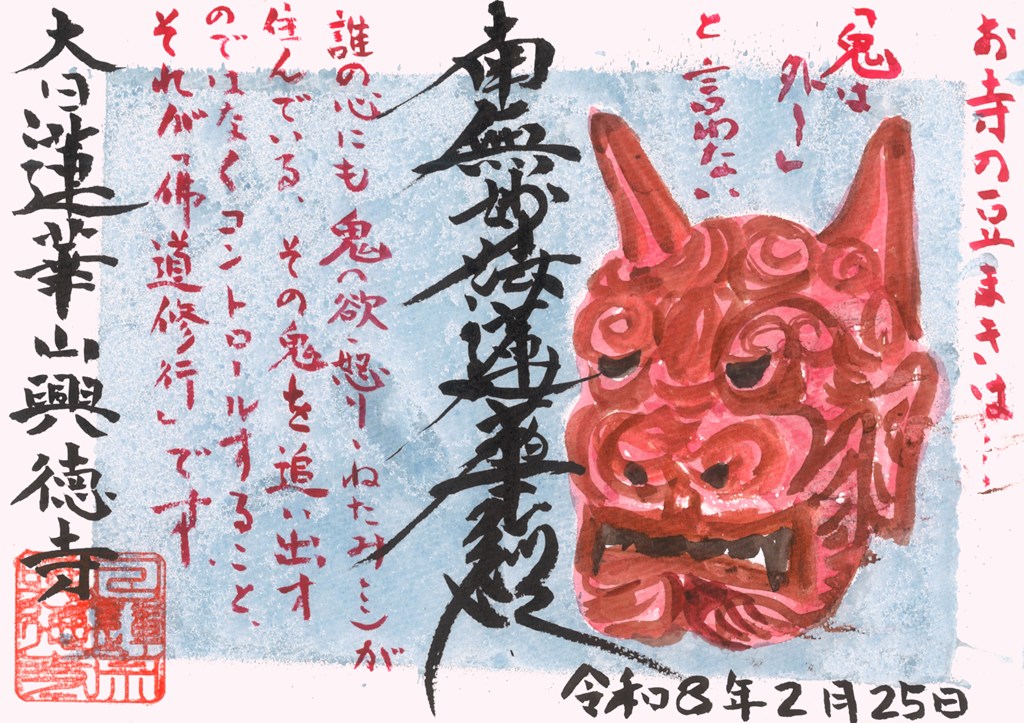 お寺の豆まきは…
「鬼は
外ー」
と言わない
南無妙法蓮華経
誰の心にも鬼(欲・怒り・ねたみ…)が
住んでいる、その鬼を追い出す
のではなくコントロールすること、
それが「佛道修行」です
大日蓮華山興徳寺
令和8年2月25日